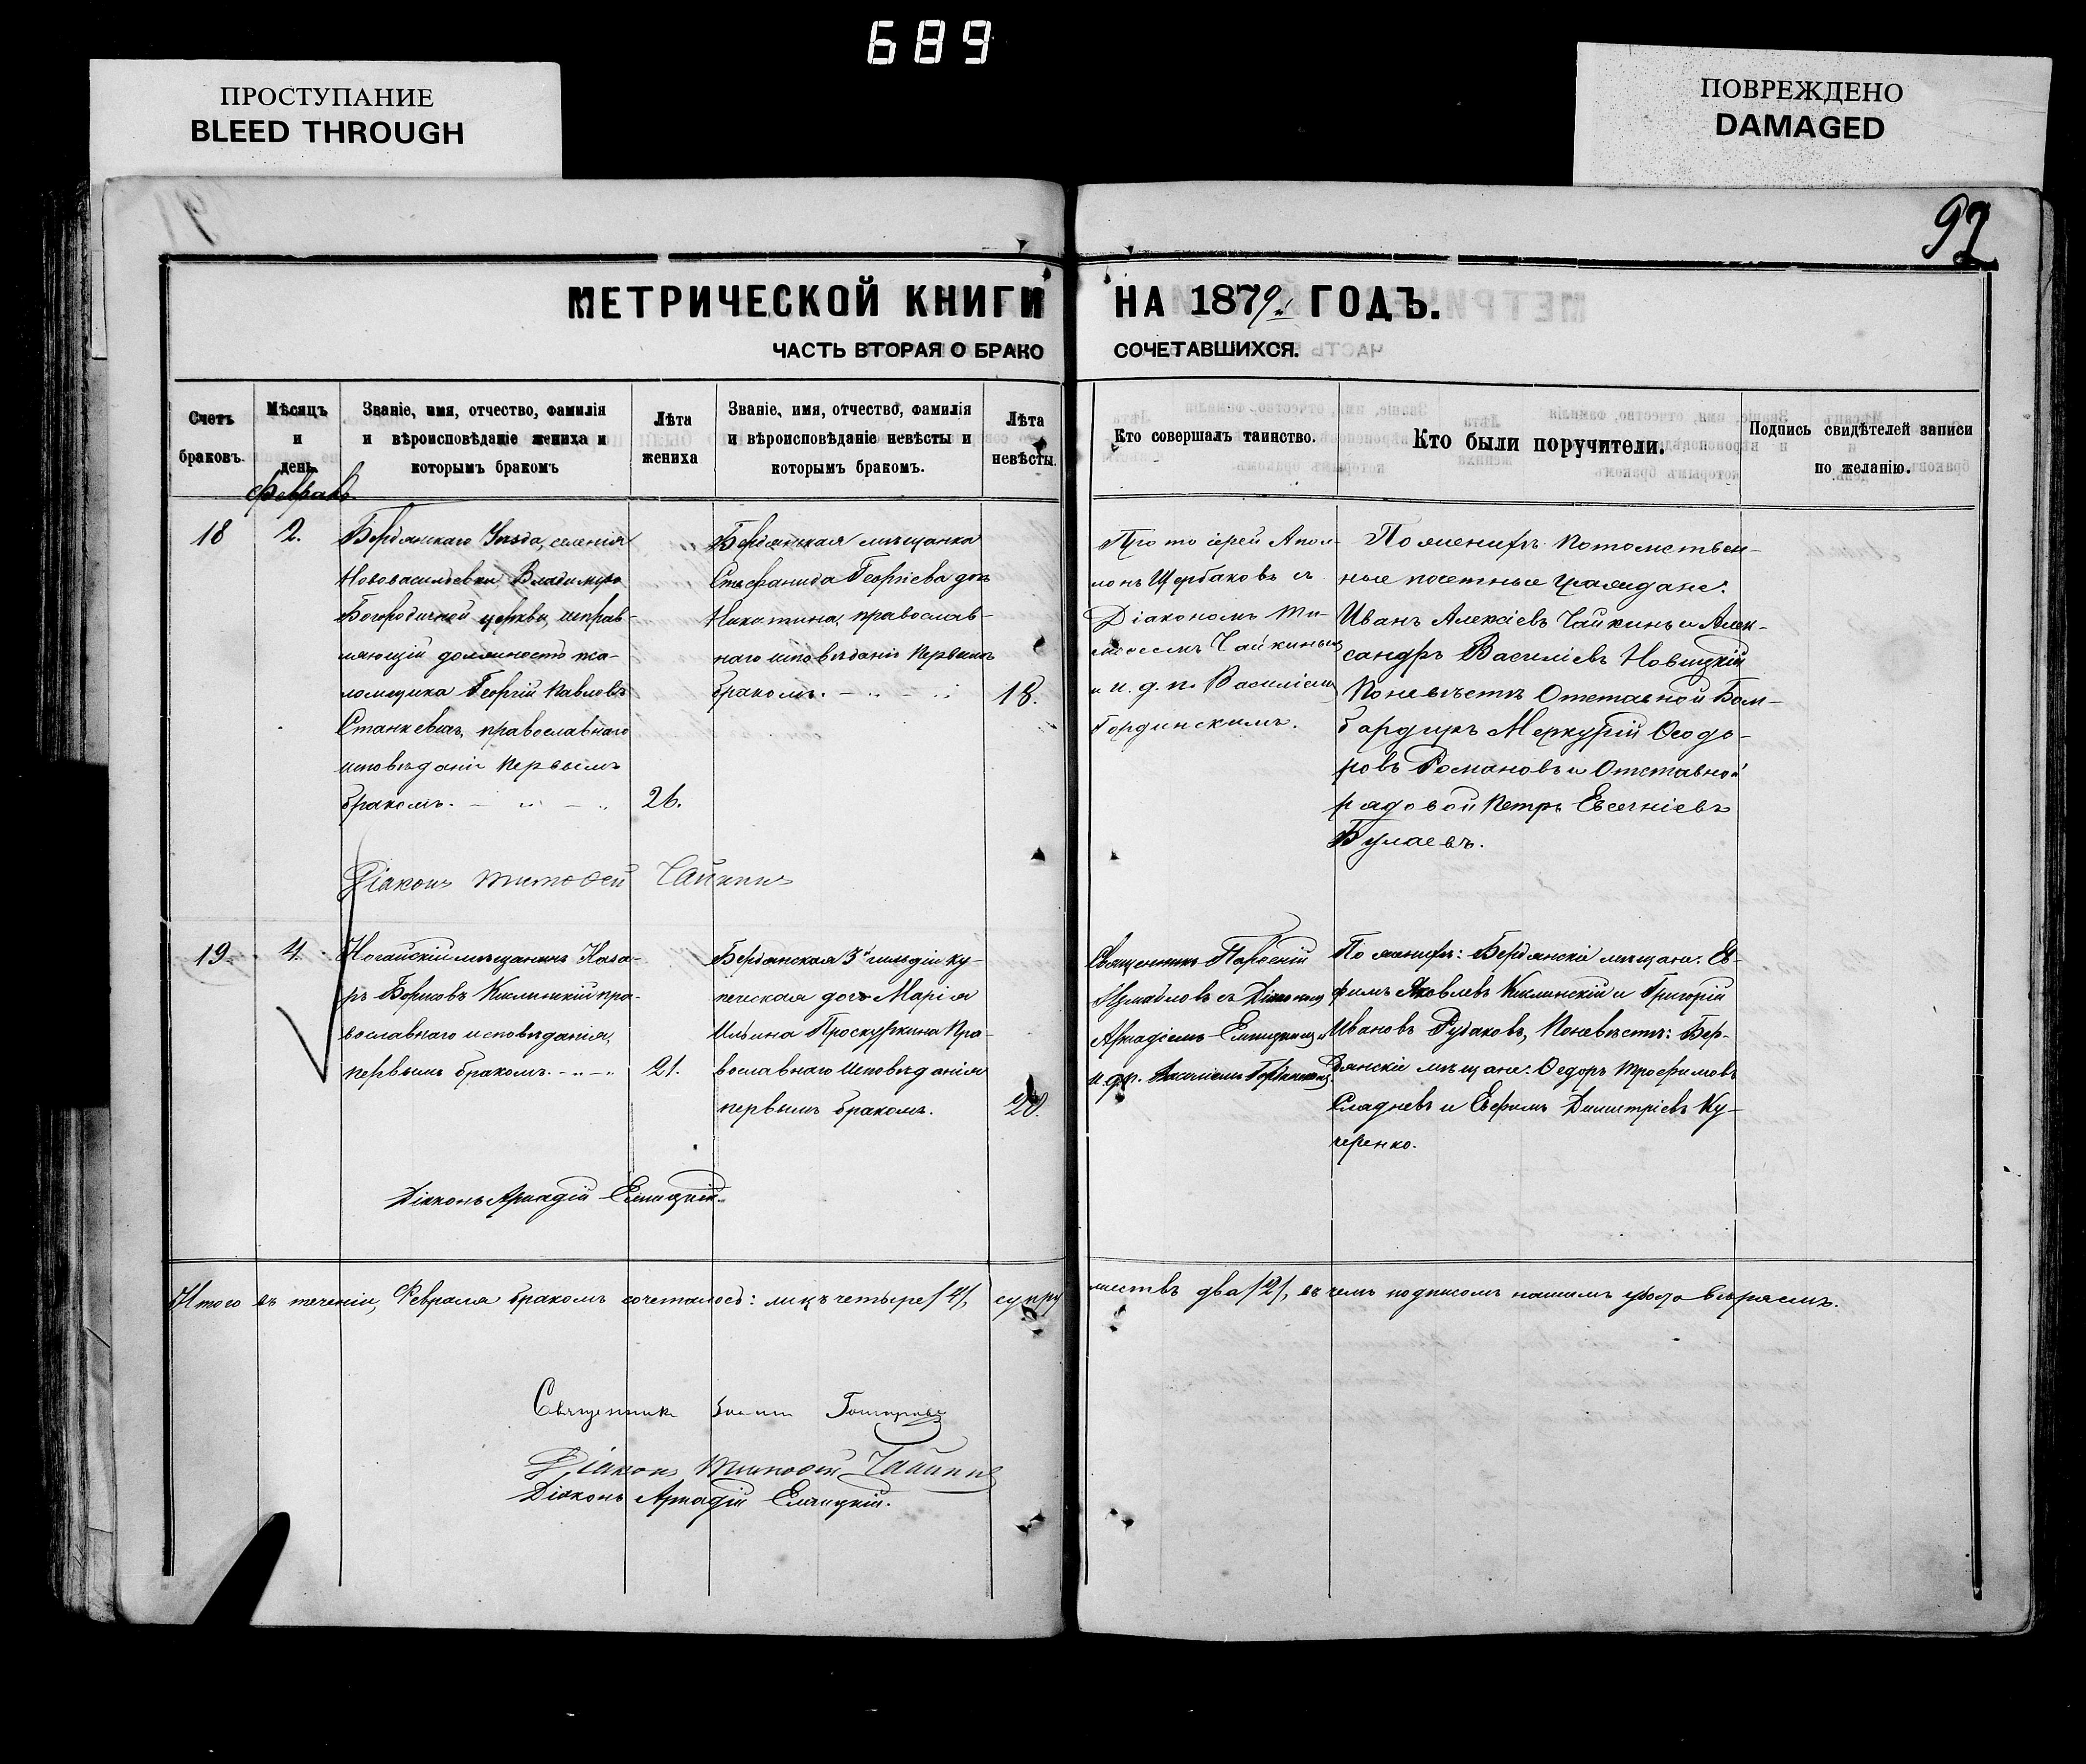 689
ПРОСТУПАНИЕ
BLEED THROUGH
ПОВРЕЖДЕНО
DAMAGED
92
МЕТРИЧЕСКОЙ КНИГИ НА 1879 ГОДЪ.
ЧАСТЬ ВТОРАЯ О БРАКОСОЧЕТАВШИХСЯ.
Счетъ браковъ.
Мѣсяцъ и день.
Званіе, имя, отчество, фамилія и вѣроисповѣданіе жениха и которымъ бракомъ
Лѣта жениха
Званіе, имя, отчество, фамилія и вѣроисповѣданіе невѣсты и которымъ бракомъ.
Лѣта невѣсты.
Кто совершалъ таинство.
Кто были поручители.
Подпись свидѣтелей записи по желанію.
Февраль
18
2.
Бердянскаго Уѣзда, селенія
Нововасильевки Владимиро
Богородичной церкви, исправ-
ляющій должность пса-
ломщика Георгій Павловъ
Станкевичъ, православнаго
исповѣданія первымъ
бракомъ.
26.
Бердянская мѣщанка
Стефанида Георгіева дочь
Никитина, православ-
наго исповѣданія первымъ
бракомъ.
18.
Протоіерей Апол-
лонъ Щербаковъ съ
Діакономъ Ти-
моѳеемъ Чайкинымъ
и и. д. п. Василіемъ
Гординскимъ.
По женихѣ: потомствен-
ные почетные граждане:
Иванъ Алексіевъ Чайкинъ и Алек-
сандръ Василіевъ Новицкій
По невѣстѣ Отставной Бом-
бардиръ Меркурій Ѳеодо-
ровъ Романовъ и Отставной
рядовой Петръ Евсегніевъ
Булаевъ.
Діаконъ Тимоѳей Чайкинъ
19.
4.
Ногайскій мѣщанинъ Наза-
ръ Борисовъ Кислинскій пра-
вославнаго исповѣданія,
первымъ бракомъ.
21.
Бердянская 3й гильдіи ку-
печеская дочь Марія
Ильина Проскурнина пра-
вославнаго исповѣданія
первымъ бракомъ.
20.
Священникъ Парѳеній
Измаиловъ съ Діакономъ
Аркадіемъ Елицкимъ и
и. д. п. Василіемъ Гординскимъ.
По женихѣ: Бердянскіе мѣщане: Еѳ-
фимъ Яковлевъ Кислинскій и Григорій
Ивановъ Рудаковъ, По невѣстѣ: Бер-
дянскіе мѣщане: Ѳедоръ Трофимовъ
Сладневъ и Евфимъ Димитріевъ Ку-
черенко.
Діаконъ Аркадій Елицкій.
Итого въ теченіи Февраля бракомъ сочеталось: лицъ четыре /4/, супружествъ два /2/, въ чемъ подписомъ нашимъ удостовѣряемъ.
Священникъ
Діаконъ Тимоѳей Чайкинъ
Діаконъ Аркадій Елицкій.